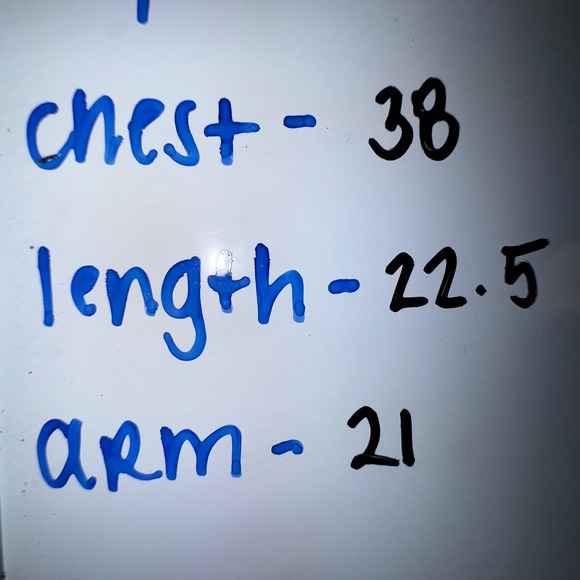 chest - 38
length - 22.5
arm - 21